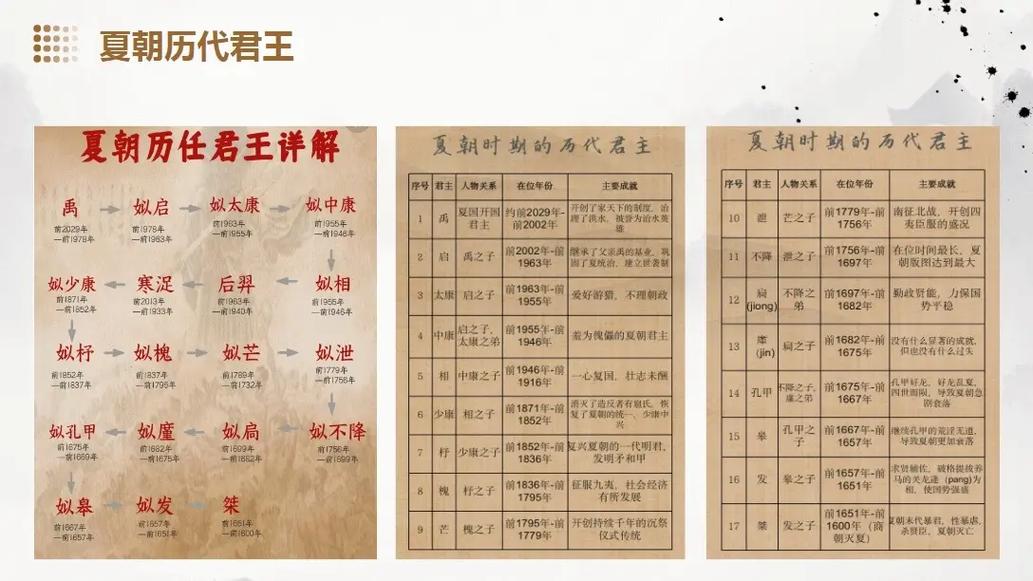 夏朝历代君王
夏朝历任君王详解
禹 姒启 姒太康 姒中康
前2029年 前1978年 前1963年 前1955年
—前1978年 —前1963年 —前1955年 —前1946年
姒少康 寒浞 后羿 姒相
前1871年 前2013年 前1963年 前1955年
—前1852年 —前1933年 —前1940年 —前1946年
姒杼 姒槐 姒芒 姒泄
前1852年 前1837年 前1789年 前1779年
—前1837年 —前1795年 —前1732年 —前1756年
姒孔甲 姒廑 姒扃 姒不降
前1675年 前1682年 前1699年 前1756年
—前1669年 —前1675年 —前1682年 —前1699年
姒皋 姒发 桀
前1667年 前1657年 前1651年
—前1657年 —前1651年 —前1600年
夏朝时期的历代君主
序号 君主 人物关系 在位年份 主要成就
1 禹 夏国开国君主 约前2029年-前2002年 开创了家天下的制度,治理了洪水,被誉为治水英雄
2 启 禹之子 前2002年-前1963年 继承了父亲禹的基业,巩固了夏统治,建立世袭制
3 太康 启之子 前1963年-前1955年 爱好游猎,不理朝政
4 中康 启之子,太康之弟 前1955年-前1946年 羞为傀儡的夏朝君主
5 相 中康之子 前1946年-前1916年 一心复国,壮志未酬
6 少康 相之子 前1871年-前1852年 消灭了造反者有扈氏,恢复了夏朝的统一、少康中兴
7 杼 少康之子 前1852年-前1836年 复兴夏朝的一代明君,发明矛和甲
8 槐 杼之子 前1836年-前1795年 征服九夷,社会经济有所发展
9 芒 槐之子 前1795年-前1779年 开创持续千年的沉祭仪式传统
夏朝时期的历代君主
序号 君主 人物关系 在位年份 主要成就
10 泄 芒之子 前1779年-前1756年 南征北战,开创四夷臣服的盛况
11 不降 泄之子 前1756年-前1697年 在位时间最长,夏朝版图达到最大
12 扃(jiong) 不降之弟 前1697年-前1682年 勤政贤能,力保国势平稳
13 廑(jin) 扃之子 前1682年-前1675年 没有什么显著的成就,但也没有什么过失
14 孔甲 不降之子,廑之弟 前1675年-前1667年 孔甲好龙,好龙乱夏,四世而陨,导致夏朝急剧衰落
15 皋 孔甲之子 前1667年-前1657年 继续孔甲的荒淫无道,导致夏朝更加衰落
16 发 皋之子 前1657年-前1651年 求贤辅佐,破格提拔养马的关龙逄(pang)为相,使国势强盛
17 桀 发之子 前1651年-前1600年(商朝灭夏) 夏朝末代暴君,性暴虐,杀贤臣,夏朝灭亡